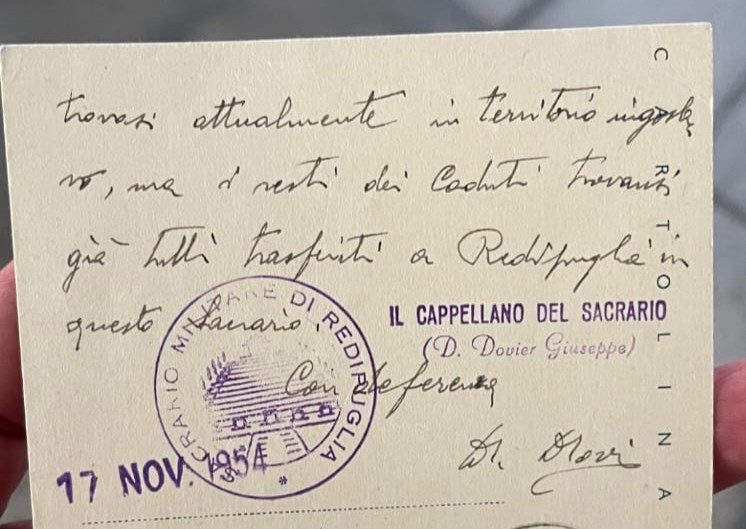 trovasi attualmente in territorio iugosla
vo, ma i resti dei Caduti trovansi
già tutti trasferiti a Redipuglia in
questo Sacrario.
Con deferenza
IL CAPPELLANO DEL SACRARIO
(D. Dovier Giuseppe)
SACRARIO MILITARE DI REDIPUGLIA
17 NOV. 1954
CARTOLINA